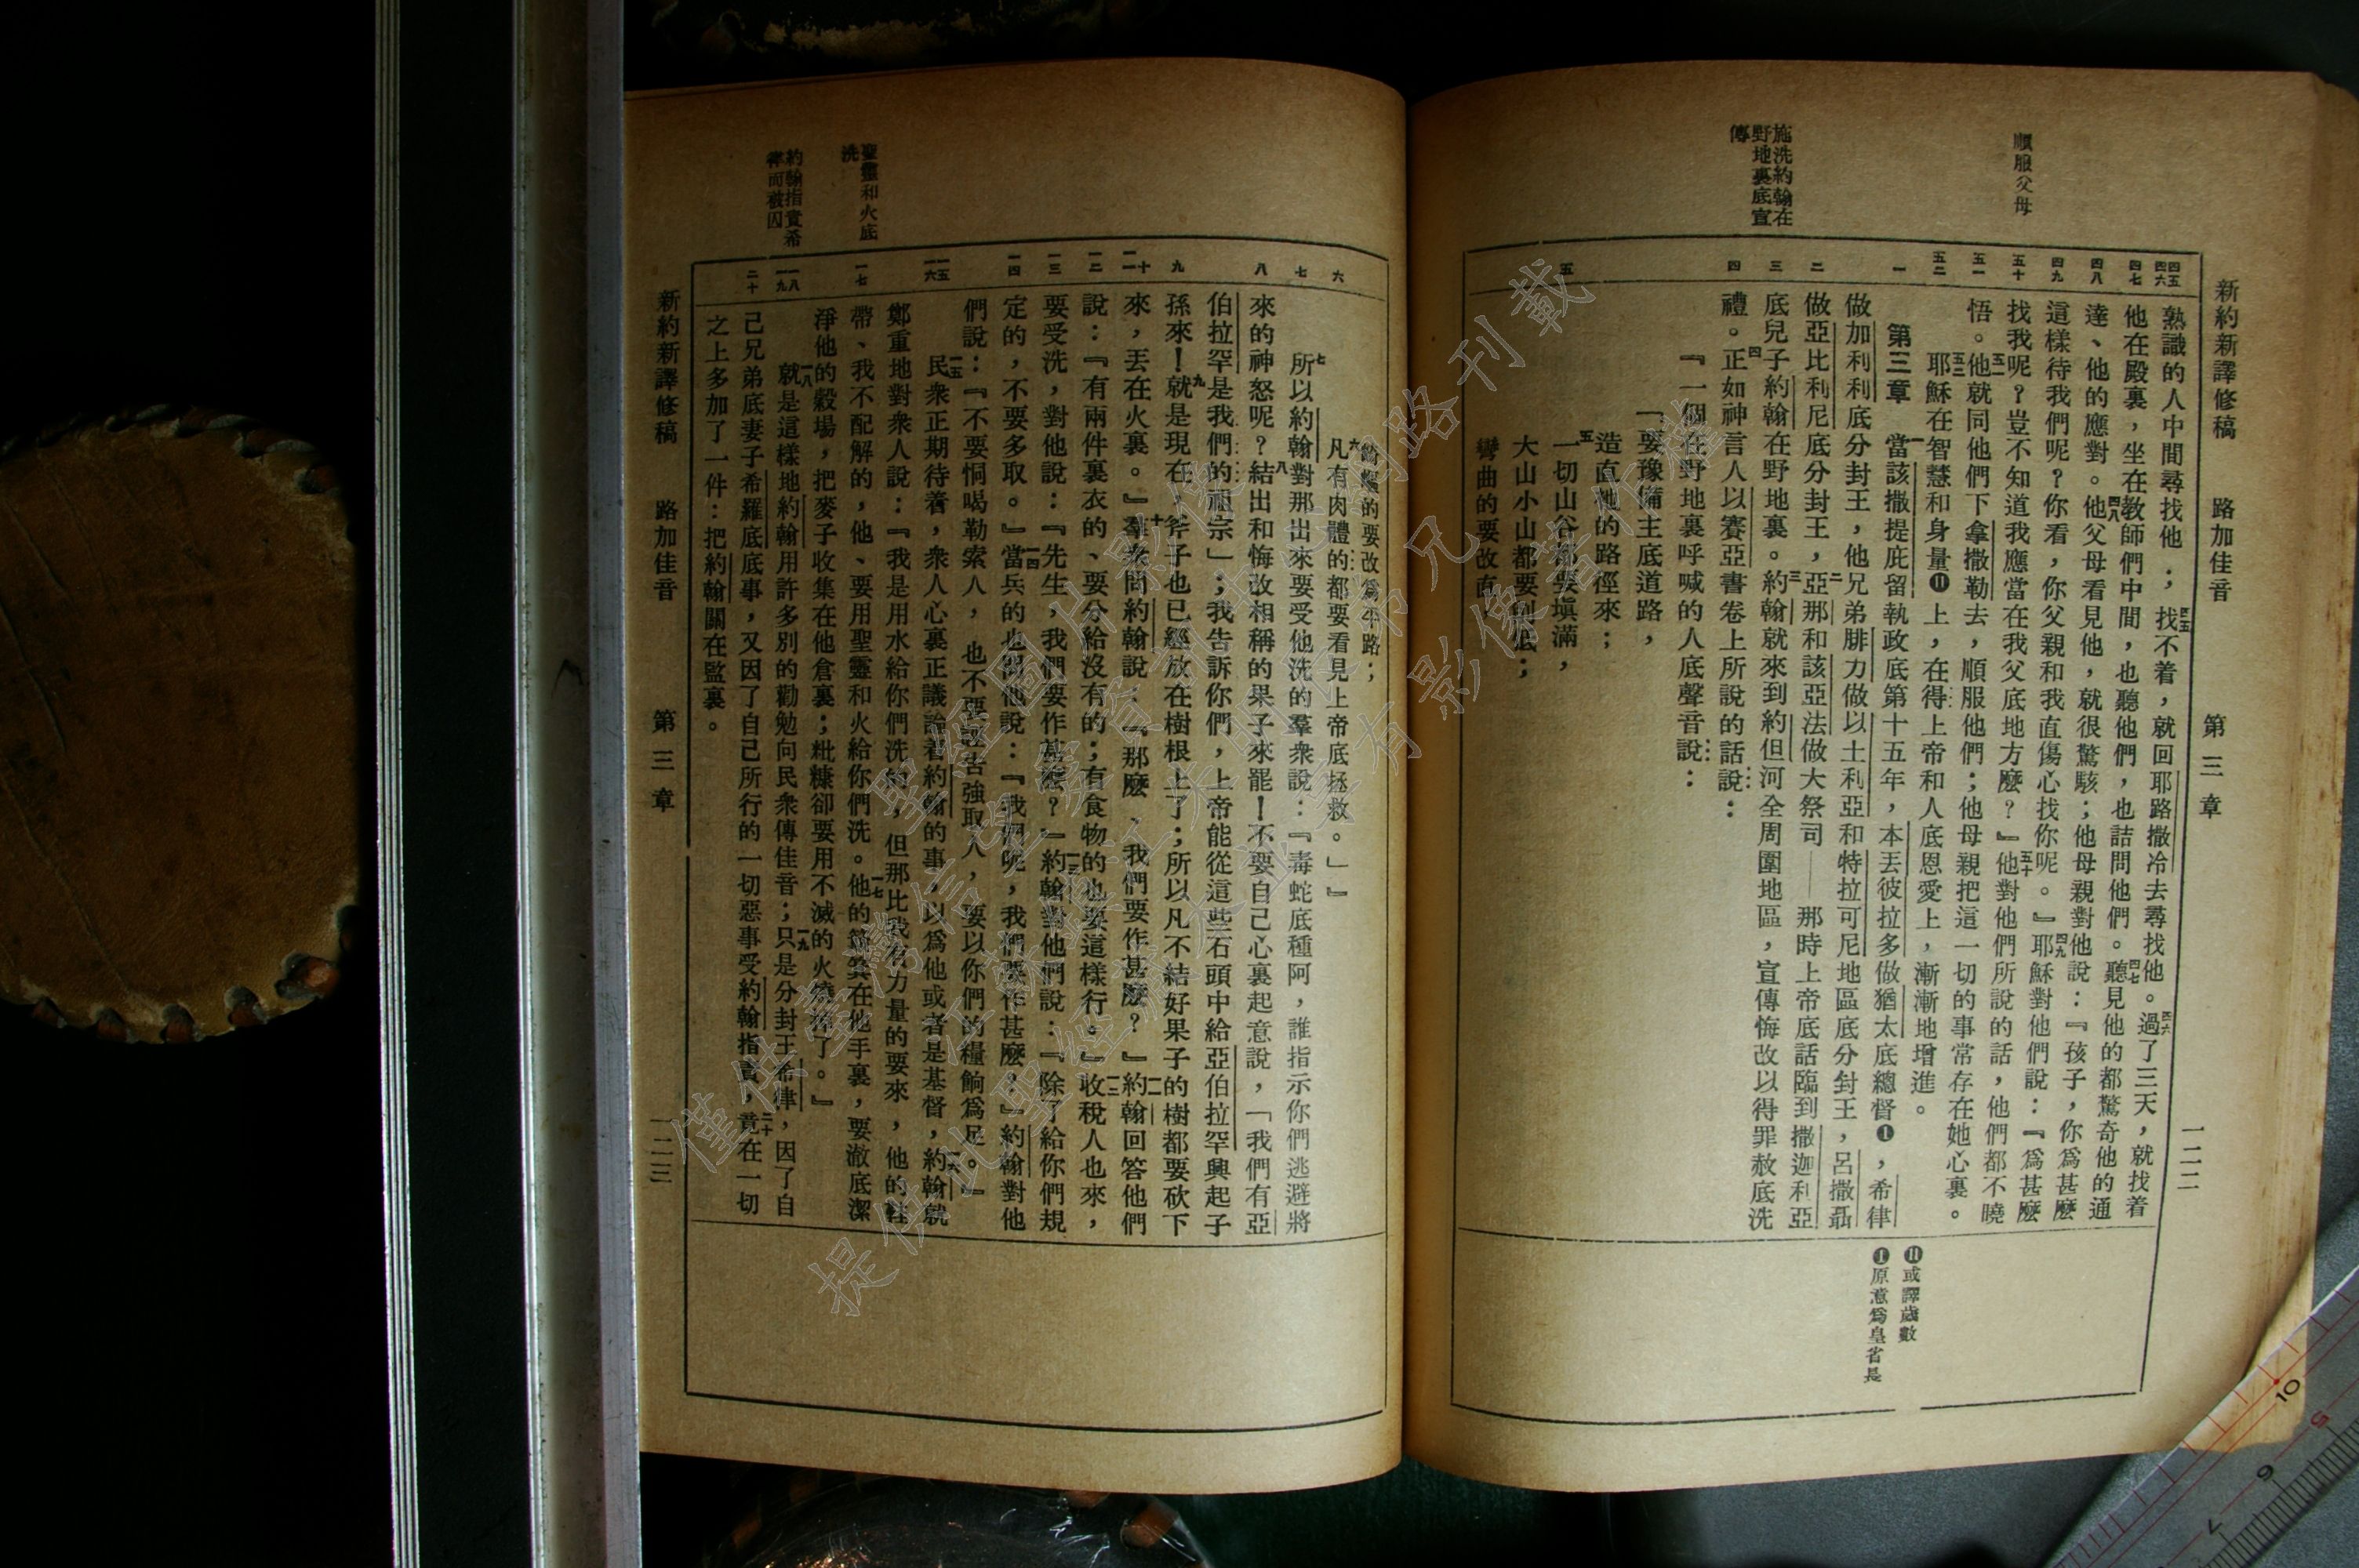 新約新譯修稿　路加佳音　第三章　一二二
順服父母
施洗約翰在
野地裏底宣
傳
四五
四六
四七
四八
四九
五十
五一
五二
一
二
三
四
五
熟識的人中間尋找他；四五找不着，就回耶路撒冷去尋找他。四六過了三天，就找着
他在殿裏，坐在教師們中間，也聽他們，也詰問他們。四七聽見他的都驚奇他的通
達、他的應對。四八他父母看見他，就很驚駭；他母親對他說：『孩子，你爲甚麼
這樣待我們呢？你看，你父親和我直傷心找你呢。』四九耶穌對他們說：『爲甚麼
找我呢？豈不知道我應當在我父底地方麼？』五十他對他們所說的話，他們都不曉
悟。五一他就同他們下拿撒勒去，順服他們；他母親把這一切的事常存在她心裏。
五二耶穌在智慧和身量⓫上，在得上帝和人底恩愛上，漸漸地增進。
第三章　一當該撒提庇留執政底第十五年，本丟彼拉多做猶太底總督❶，希律
做加利利底分封王，他兄弟腓力做以土利亞和特拉可尼地區底分封王，呂撒聶
做亞比利尼底分封王，二亞那和該亞法做大祭司——那時上帝底話臨到撒迦利亞
底兒子約翰在野地裏。三約翰就來到約但河全周圍地區，宣傳悔改以得罪赦底洗
禮。四正如神言人以賽亞書卷上所說的話說：
『一個在野地裏呼喊的人底聲音說：
「要豫備主底道路，
造直他的路徑來；
五一切山谷都要填滿，
大山小山都要削底；
彎曲的要改直，
⓫或譯歲數
❶原意爲皇省長
聖靈和火底
洗
約翰指責希
律而被囚
六
七
八
九
十
一一
一二
一三
一四
一五
一六
一七
一八
一九
二十
的要改爲平路；
六凡有肉體的都要看見上帝底拯救。」』
七所以約翰對那出來要受他洗的羣衆說：『毒蛇底種阿，誰指示你們逃避將
來的神怒呢？八結出和悔改相稱的果子來罷！不要自己心裏起意說，「我們有亞
伯拉罕是我們的祖宗」；我告訴你們，上帝能從這些石頭中給亞伯拉罕興起子
孫來！九就是現在，斧子也已經放在樹根上了；所以凡不結好果子的樹都要砍下
來，丟在火裏。』十羣衆問約翰說：『那麼、我們要作甚麼？』一一約翰回答他們
說：『有兩件裏衣的、要分給沒有的；有食物的也要這樣行。』一二收稅人也來，
要受洗，對他說：『先生，我們要作甚麼？』一三約翰對他們說：『除了給你們規
定的，不要多取。』一四當兵的也問他說：『我們呢，我們要作甚麼？』約翰對他
們說：『不要恫喝勒索人，也不要誣告強取人，要以你們的糧餉爲足。』
一五民衆正期待着，衆人心裏正議論着約翰的事，以爲他或者是基督，一六約翰就
鄭重地對衆人說：『我是用水給你們洗的，但那比我有力量的要來，他的鞋
帶、我不配解的，他、要用聖靈和火給你們洗。一七他的簸箕在他手裏，要澈底潔
淨他的穀場，把麥子收集在他倉裏；粃糠卻要用不滅的火燒掉了。』
一八就是這樣地約翰用許多別的勸勉向民衆傳佳音；一九只是分封王希律，因了自
己兄弟底妻子希羅底底事，又因了自己所行的一切惡事受約翰指責，二十竟在一切
之上多加了一件：把約翰關在監裏。
新約新譯修稿　路加佳音　第三章　一二三